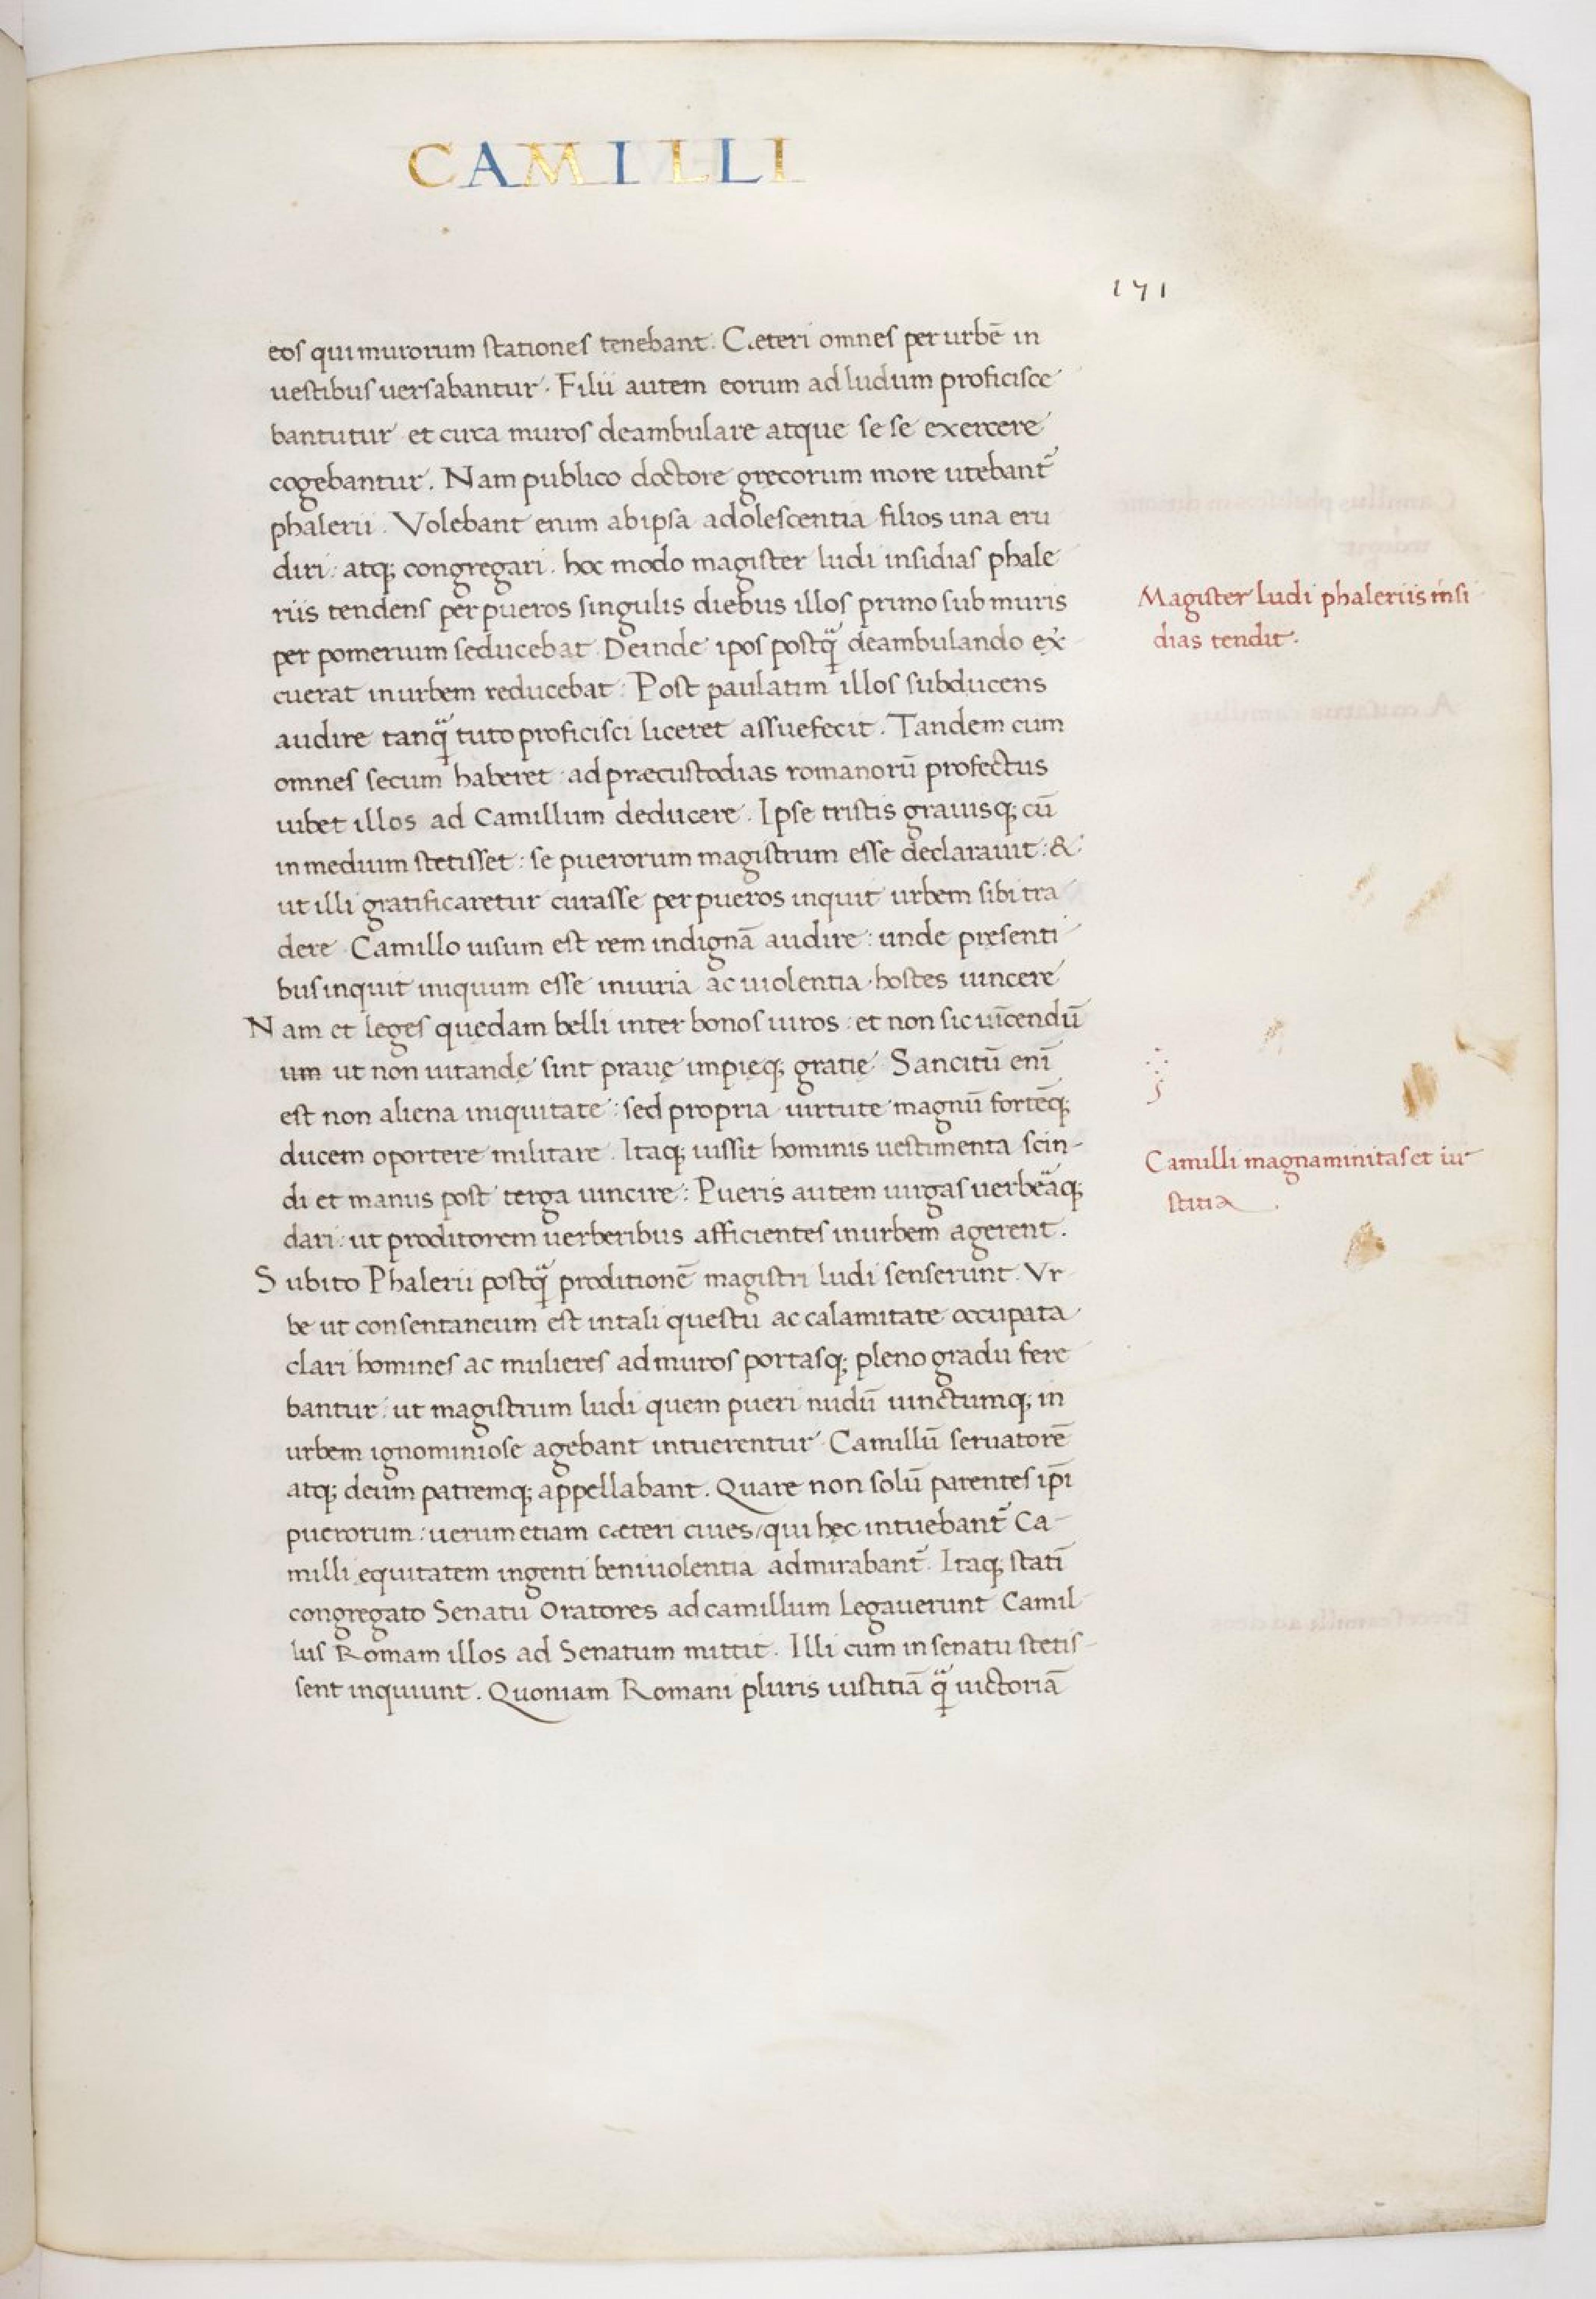 CAMILLI
171
eos qui murorum stationes tenebant. Cæteri omnes per urbē in
uestibus uersabantur. Filii autem eorum ad ludum proficisce
bantutur et circa muros deambulare atque se se exercere
cogebantur. Nam publico doctore gręcorum more utebant᷑
phalerii. Volebant enim ab ipsa adolescentia filios una eru
diri: atq; congregari. hoc modo magister ludi insidias phale
riis tendens per pueros singulis diebus illos primo sub muris
per pomerium seducebat. Deinde ipos postq̃ deambulando ex
cuerat in urbem reducebat: Post paulatim illos subducens
audire tanq̃ tuto proficisci liceret assuefecit. Tandem cum
omnes secum haberet: ad præcustodias romanorū profectus
iubet illos ad Camillum deducere. Ipse tristis grauisq; cū
in medium stetisset: se puerorum magistrum esse declarauit: &
ut illi gratificaretur curasse per pueros inquit urbem sibi tra
dere. Camillo uisum est rem indignā audire: unde pręsenti
bus inquit iniquum esse iniuria ac uiolentia hostes uincere
Nam et leges quędam belli inter bonos uiros: et non sic uīcendū
um ut non uitandę sint prauę impięq; gratię. Sancitū enī
est non aliena iniquitate: sed propria uirtute magnū fortēq;
ducem oportere militare. Itaq; iussit hominis uestimenta scin-
di et manus post terga uincire: Pueris autem uirgas uerbēāq;
dari: ut proditorem uerberibus afficientes in urbem agerent.
Subito Phalerii postq̃ proditionē magistri ludi senserunt. Vr
be ut consentaneum est in tali questu ac calamitate occupata
clari homines ac mulieres ad muros portasq; pleno gradu fere
bantur: ut magistrum ludi quem pueri nudū uinctumq; in
urbem ignominiose agebant intuerentur. Camillū seruatorē
atq; deum patremq; appellabant. Quare non solū parentes ipī
puerorum: uerum etiam cæteri ciues/qui hęc intuebant᷑ Ca-
milli ęquitatem ingenti beniuolentia admirabant᷑. Itaq; statī
congregato Senatu Oratores ad camillum Legauerunt Camil
lus Romam illos ad Senatum mittit. Illi cum in senatu stetis-
sent inquiunt. Quoniam Romani pluris iustitiā q̃ uictoriā
Magister ludi phaleriis insi
dias tendit.
Camilli magnaminitas et iu-
stitia.